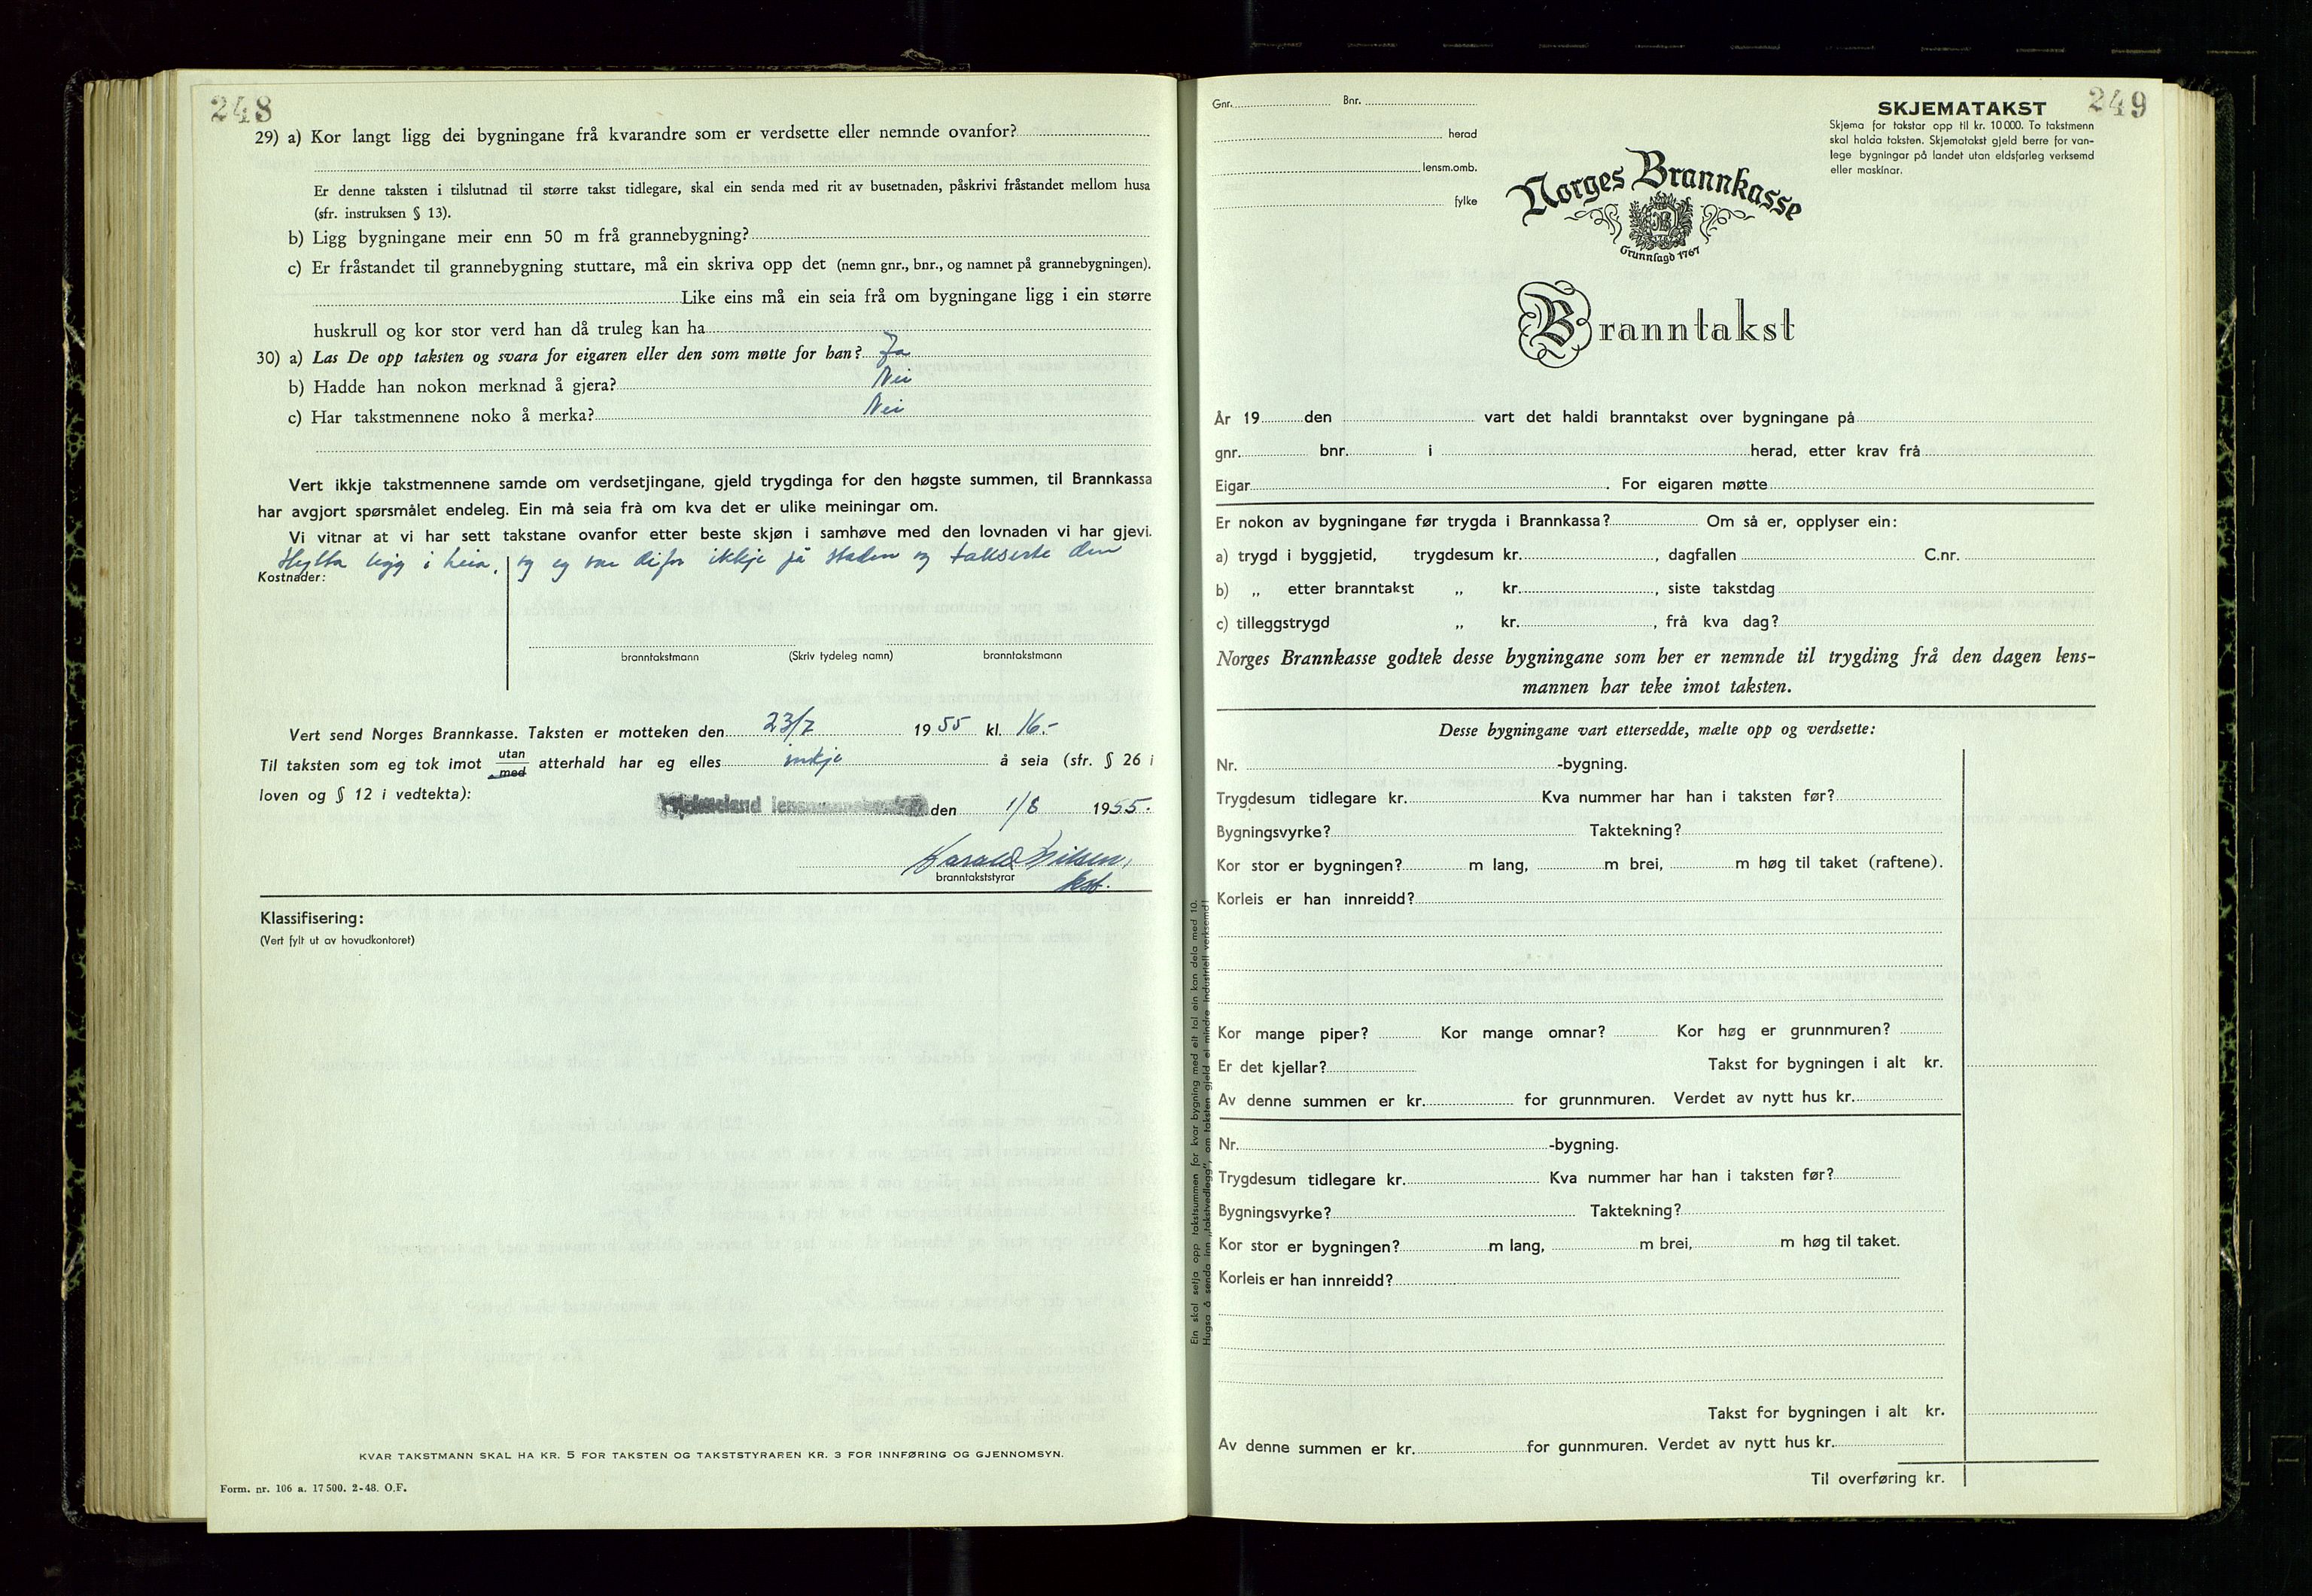 248
29) a) Kor langt ligg dei bygningane frå kvarandre som er verdsette eller nemnde ovanfor?
Er denne taksten i tilslutnad til større takst tidlegare, skal ein senda med rit av busetnaden, påskrivi fråstandet mellom husa
(sfr. instruksen § 13).
b) Ligg bygningane meir enn 50 m frå grannebygning?
c) Er fråstandet til grannebygning stuttare, må ein skriva opp det (nemn gnr., bnr., og namnet på grannebygningen).
Like eins må ein seia frå om bygningane ligg i ein større
huskrull og kor stor verd han då truleg kan ha
30) a) Las De opp taksten og svara for eigaren eller den som møtte for han? Ja
b) Hadde han nokon merknad å gjera? Nei
c) Har takstmennene noko å merka? Nei
Vert ikkje takstmennene samde om verdsetjingane, gjeld trygdinga for den høgste summen, til Brannkassa
har avgjort spørsmålet endeleg. Ein må seia frå om kva det er ulike meiningar om.
Vi vitnar at vi har sett takstane ovanfor etter beste skjøn i samhøve med den lovnaden vi har gjevi.
Hytta ligg i heia, og eg var difor ikkje på staden og takserte den
Kostnader:
branntakstmann (Skriv tydeleg namn) branntakstmann
Vert send Norges Brannkasse. Taksten er motteken den 23/7 1955 kl. 16.-
Til taksten som eg tok imot utan/med atterhald har eg elles inkje å seia (sfr. § 26 i
loven og § 12 i vedtekta):
lensmannskontor den 1/8 1955.
Harald Nilsen,
branntakststyrar
kst.
Klassifisering:
(Vert fylt ut av hovudkontoret)
KVAR TAKSTMANN SKAL HA KR. 5 FOR TAKSTEN OG TAKSTSTYRAREN KR. 3 FOR INNFØRING OG GJENNOMSYN.
Form. nr. 106 a. 17 500. 2-48. O.F.
Ein skal setja opp takstsummen for kvar bygning med eit tal ein kan dela med 10.
Hugsa å senda inn „takstvedlegg", om taksten gjeld ei mindre industriell verksemd!
249
Gnr. Bnr.
herad
lensm.omb.
fylke
SKJEMATAKST
Skjema for takstar opp til kr. 10 000. To takstmenn
skal halda taksten. Skjematakst gjeld berre for van-
lege bygningar på landet utan eldsfarleg verksemd
eller maskinar.
Norges Brannkasse
Grunnlagd 1767
Branntakst
År 19 den vart det haldi branntakst over bygningane på
gnr. bnr. i herad, etter krav frå
Eigar . For eigaren møtte
Er nokon av bygningane før trygda i Brannkassa? Om så er, opplyser ein:
a) trygd i byggjetid, trygdesum kr. , dagfallen C.nr.
b) „ etter branntakst „ kr. , siste takstdag
c) tilleggstrygd „ kr. , frå kva dag?
Norges Brannkasse godtek desse bygningane som her er nemnde til trygding frå den dagen lens-
mannen har teke imot taksten.
Desse bygningane vart ettersedde, mælte opp og verdsette:
Nr. -bygning.
Trygdesum tidlegare kr. Kva nummer har han i taksten før?
Bygningsvyrke? Taktekning?
Kor stor er bygningen? m lang, m brei, m høg til taket (raftene).
Korleis er han innreidd?
Kor mange piper? Kor mange omnar? Kor høg er grunnmuren?
Er det kjellar? Takst for bygningen i alt kr.
Av denne summen er kr. for grunnmuren. Verdet av nytt hus kr.
Nr. -bygning.
Trygdesum tidlegare kr. Kva nummer har han i taksten før?
Bygningsvyrke? Taktekning?
Kor stor er bygningen? m lang, m brei, m høg til taket.
Korleis er han innreidd?
Takst for bygningen i alt kr.
Av denne summen er kr. for gunnmuren. Verdet av nytt hus kr.
Til overføring kr.